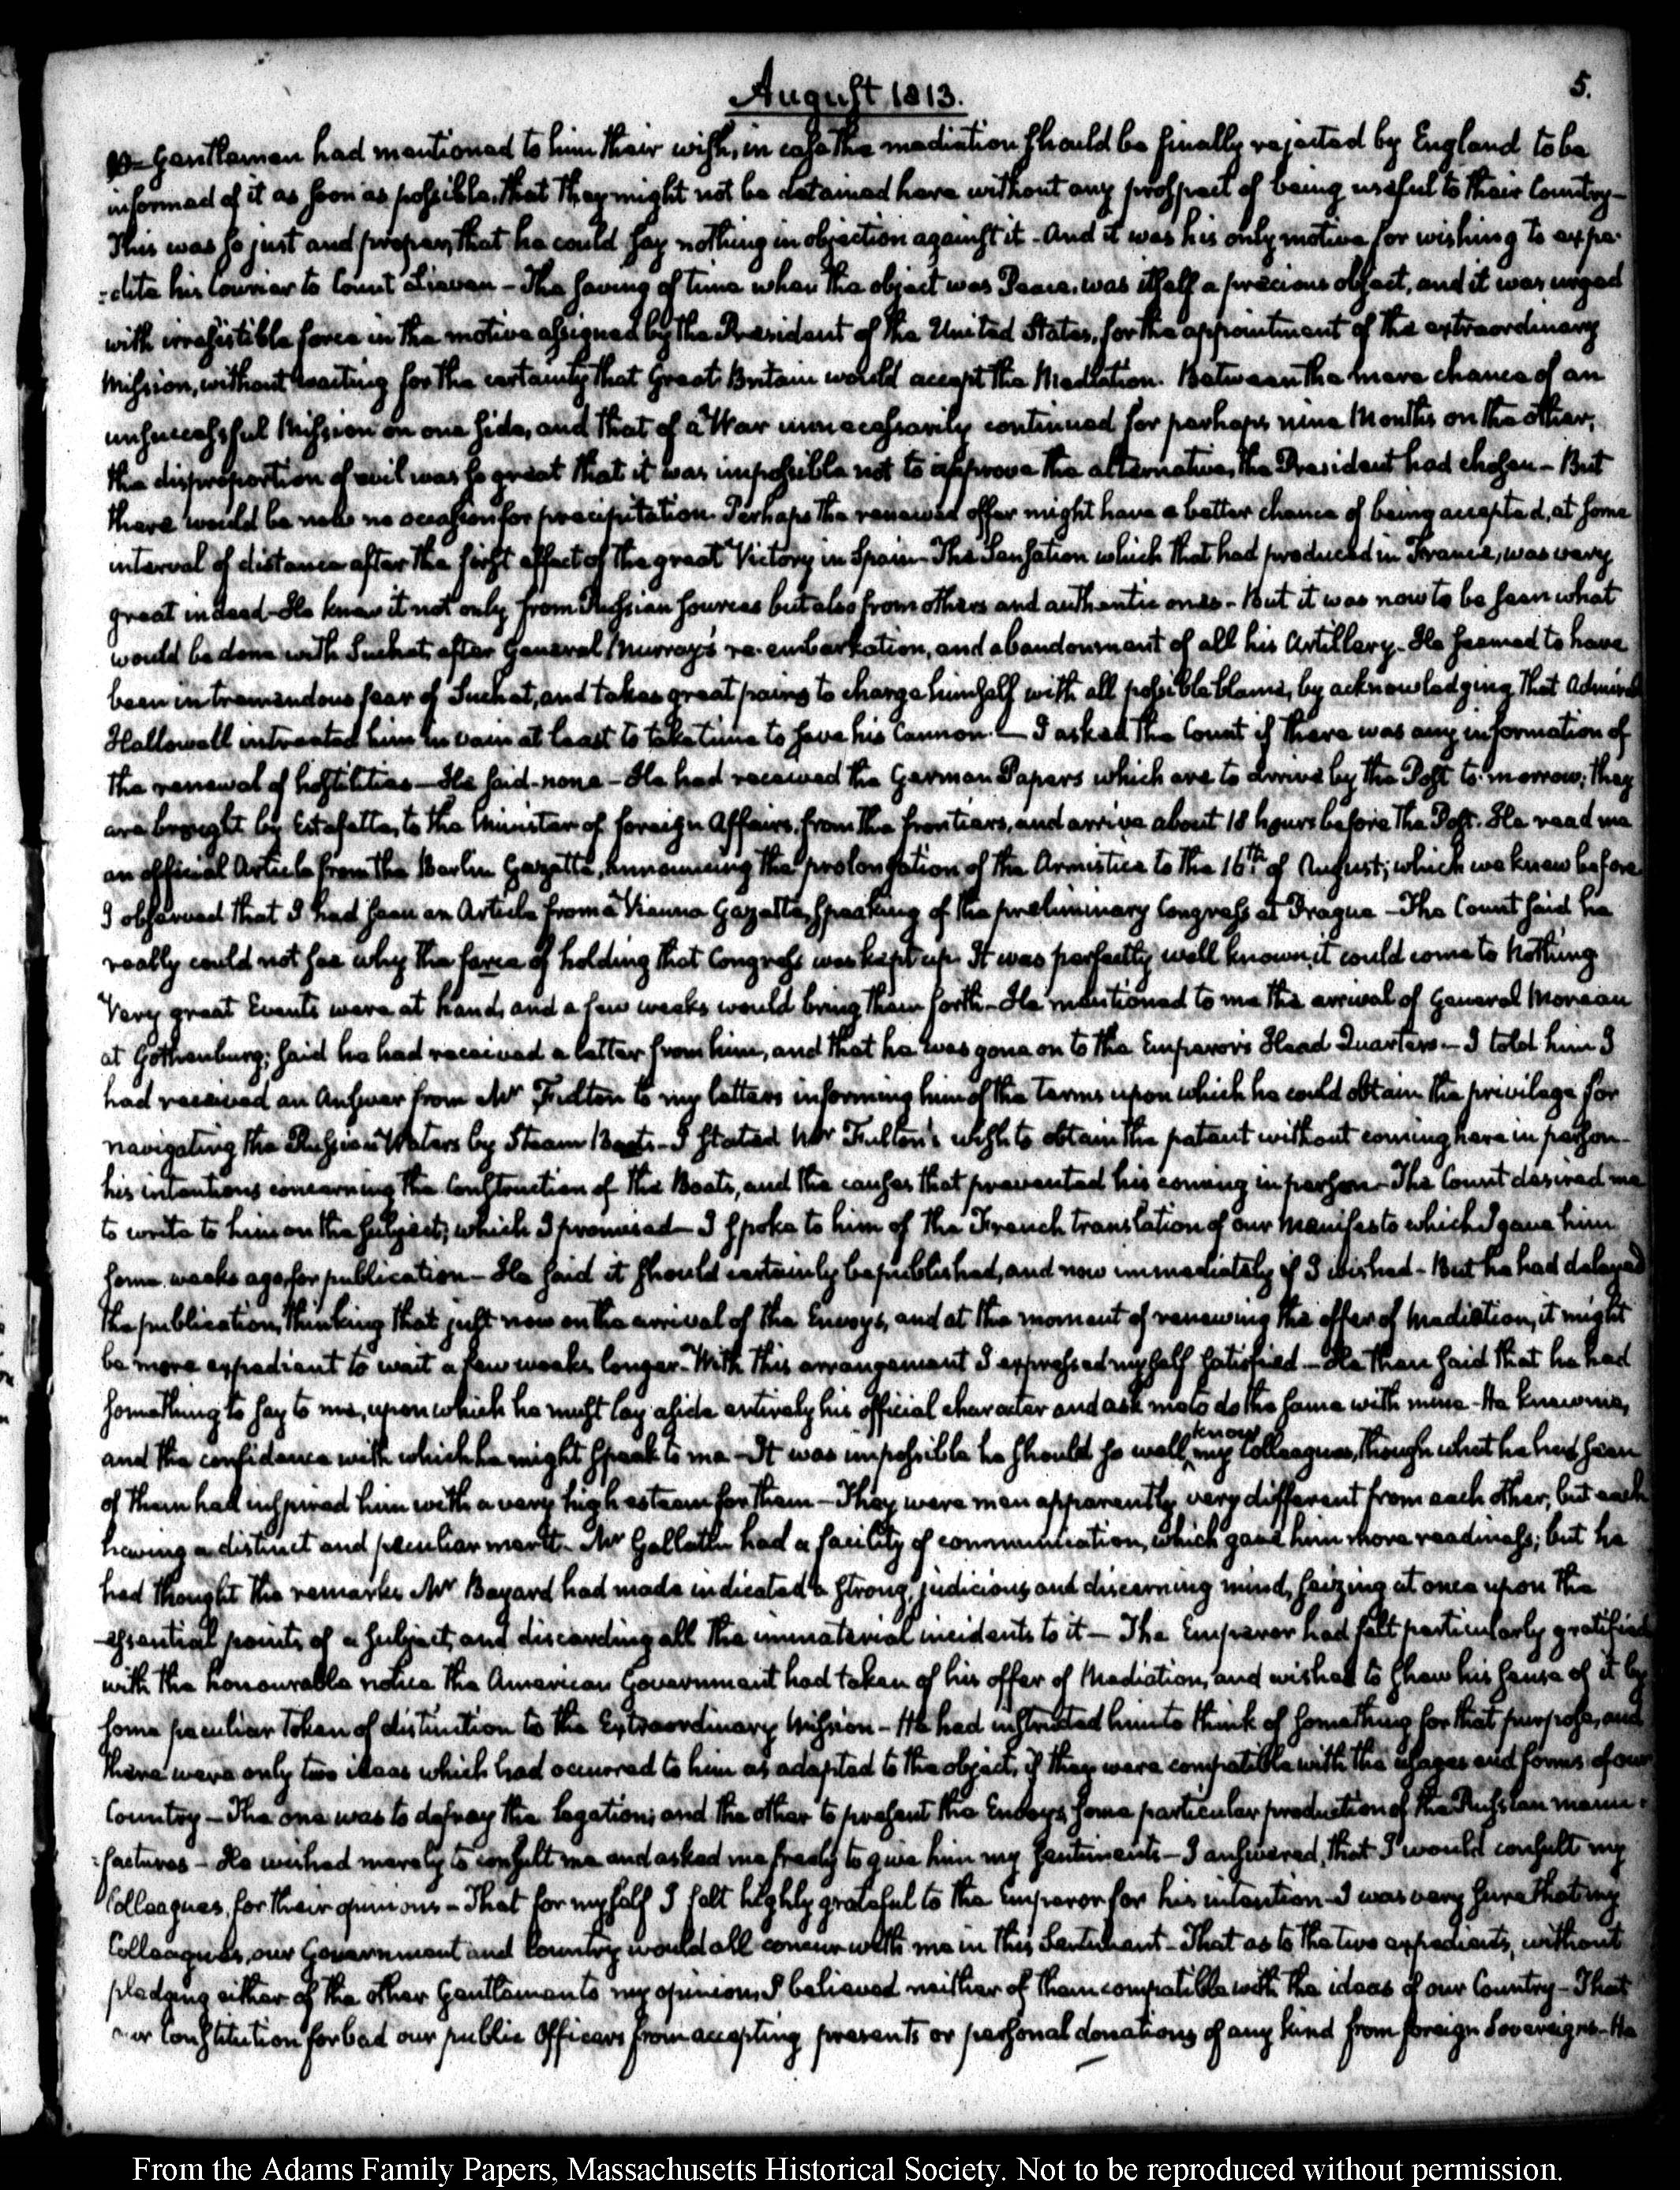 August 1813.
5.
Gentlemen had mentioned to him their wish, in case the mediation should be finally rejected by England to be
informed of it as soon as possible, that they might not be detained here without any prospect of being useful to their Country—
This was so just and proper, that he could say nothing in objection against it - And it was his only motive for wishing to expe-
:dite his Courier to Count Lieven — The saving of time when the object was Peace, was itself a precious object, and it was urged
with irresistible force in the motive assigned by the President of the United States, for the appointment of the extraordinary
Mission, without waiting for the certainty that Great Britain would accept the Mediation. Between the mere chance of an
unsuccessful Mission on one side, and that of a War unnecessarily continued for perhaps nine Months on the other,
the disproportion of evil was so great that it was impossible not to approve the alternative, the President had chosen — But
there would be now no occasion for precipitation. Perhaps the renewed offer might have a better chance of being accepted, at some
interval of distance after the first effect of the great Victory in Spain — The Sensation which that had produced in France, was very
great indeed — He knew it not only from Russian sources but also from others and authentic ones - But it was now to be seen what
would be done with Suchet, after General Murray's re-embarkation, and abandonment of all his Artillery - He seemed to have
been in tremendous fear of Suchet, and takes great pains to charge himself with all possible blame, by acknowledging that Admiral
Hallowell intreated him in vain at least to take time to save his Cannon. — I asked the Count if there was any information of
the renewal of hostilities — He said none — He had received the German Papers which are to arrive by the Post to-morrow; they
are brought by Estafette, to the Minister of foreign Affairs, from the frontiers, and arrive about 18 hours before the Post. He read me
an official Article from the Berlin Gazette, announcing the prolongation of the Armistice to the 16th of August; which we knew before
I observed that I had seen an Article from a Vienna Gazette, speaking of the preliminary Congress at Prague — The Count said he
really could not see why the farce of holding that Congress was kept up. It was perfectly well known, it could come to Nothing
Very great Events were at hand, and a few weeks would bring them forth — He mentioned to me the arrival of General Moreau
at Gothenburg; said he had received a letter from him, and that he was gone on to the Emperor's Head Quarters — I told him I
had received an Answer from Mr Fulton to my letters informing him of the terms upon which he could obtain the privilege for
navigating the Russian Waters by Steam Boats — I stated Mr Fulton's wish to obtain the patent without coming here in person—
his intentions concerning the Construction of the Boats, and the causes that prevented his coming in person — The Count desired me
to write to him on the subject; which I promised — I spoke to him of the French translation of our Manifesto which I gave him
some weeks ago, for publication — He said it should certainly be published, and now immediately if I wished - But he had delayed
the publication, thinking that just now on the arrival of the Envoys, and at the moment of renewing the offer of Mediation, it might
be more expedient to wait a few weeks longer - With this arrangement I expressed myself satisfied — He then said that he had
something to say to me, upon which he must lay aside entirely his official character and ask me to do the same with mine - He knew me,
and the confidence with which he might speak to me — It was impossible he should so well know my Colleagues, though what he had seen
of them had inspired him with a very high esteem for them — They were men apparently very different from each other, but each
having a distinct and peculiar merit. Mr Gallatin had a facility of communication, which gave him more readiness; but he
had thought the remarks Mr Bayard had made indicated a strong, judicious and discerning mind, seizing at once upon the
essential points of a subject, and discarding all the immaterial incidents to it — The Emperor had felt particularly gratified
with the honourable notice the American Government had taken of his offer of Mediation, and wished to shew his sense of it by
some peculiar token of distinction to the Extraordinary Mission — He had instructed him to think of something for that purpose, and
there were only two ideas which had occurred to him as adapted to the object, if they were compatible with the usages and forms of our
Country — The one was to defray the Legation; and the other to present the Envoys some particular production of the Russian manu-
:factures — He wished merely to consult me and asked me freely to give him my sentiments — I answered, that I would consult my
Colleagues, for their opinions — That for myself I felt highly grateful to the Emperor for his intention - I was very sure that my
Colleagues, our Government and Country would all concur with me in this Sentiment - That as to the two expedients, without
pledging either of the other Gentlemen to my opinion, I believed neither of them compatible with the ideas of our Country — That
our Constitution forbad our public Officers from accepting presents or personal donations of any kind from foreign Sovereigns - He
From the Adams Family Papers, Massachusetts Historical Society. Not to be reproduced without permission.